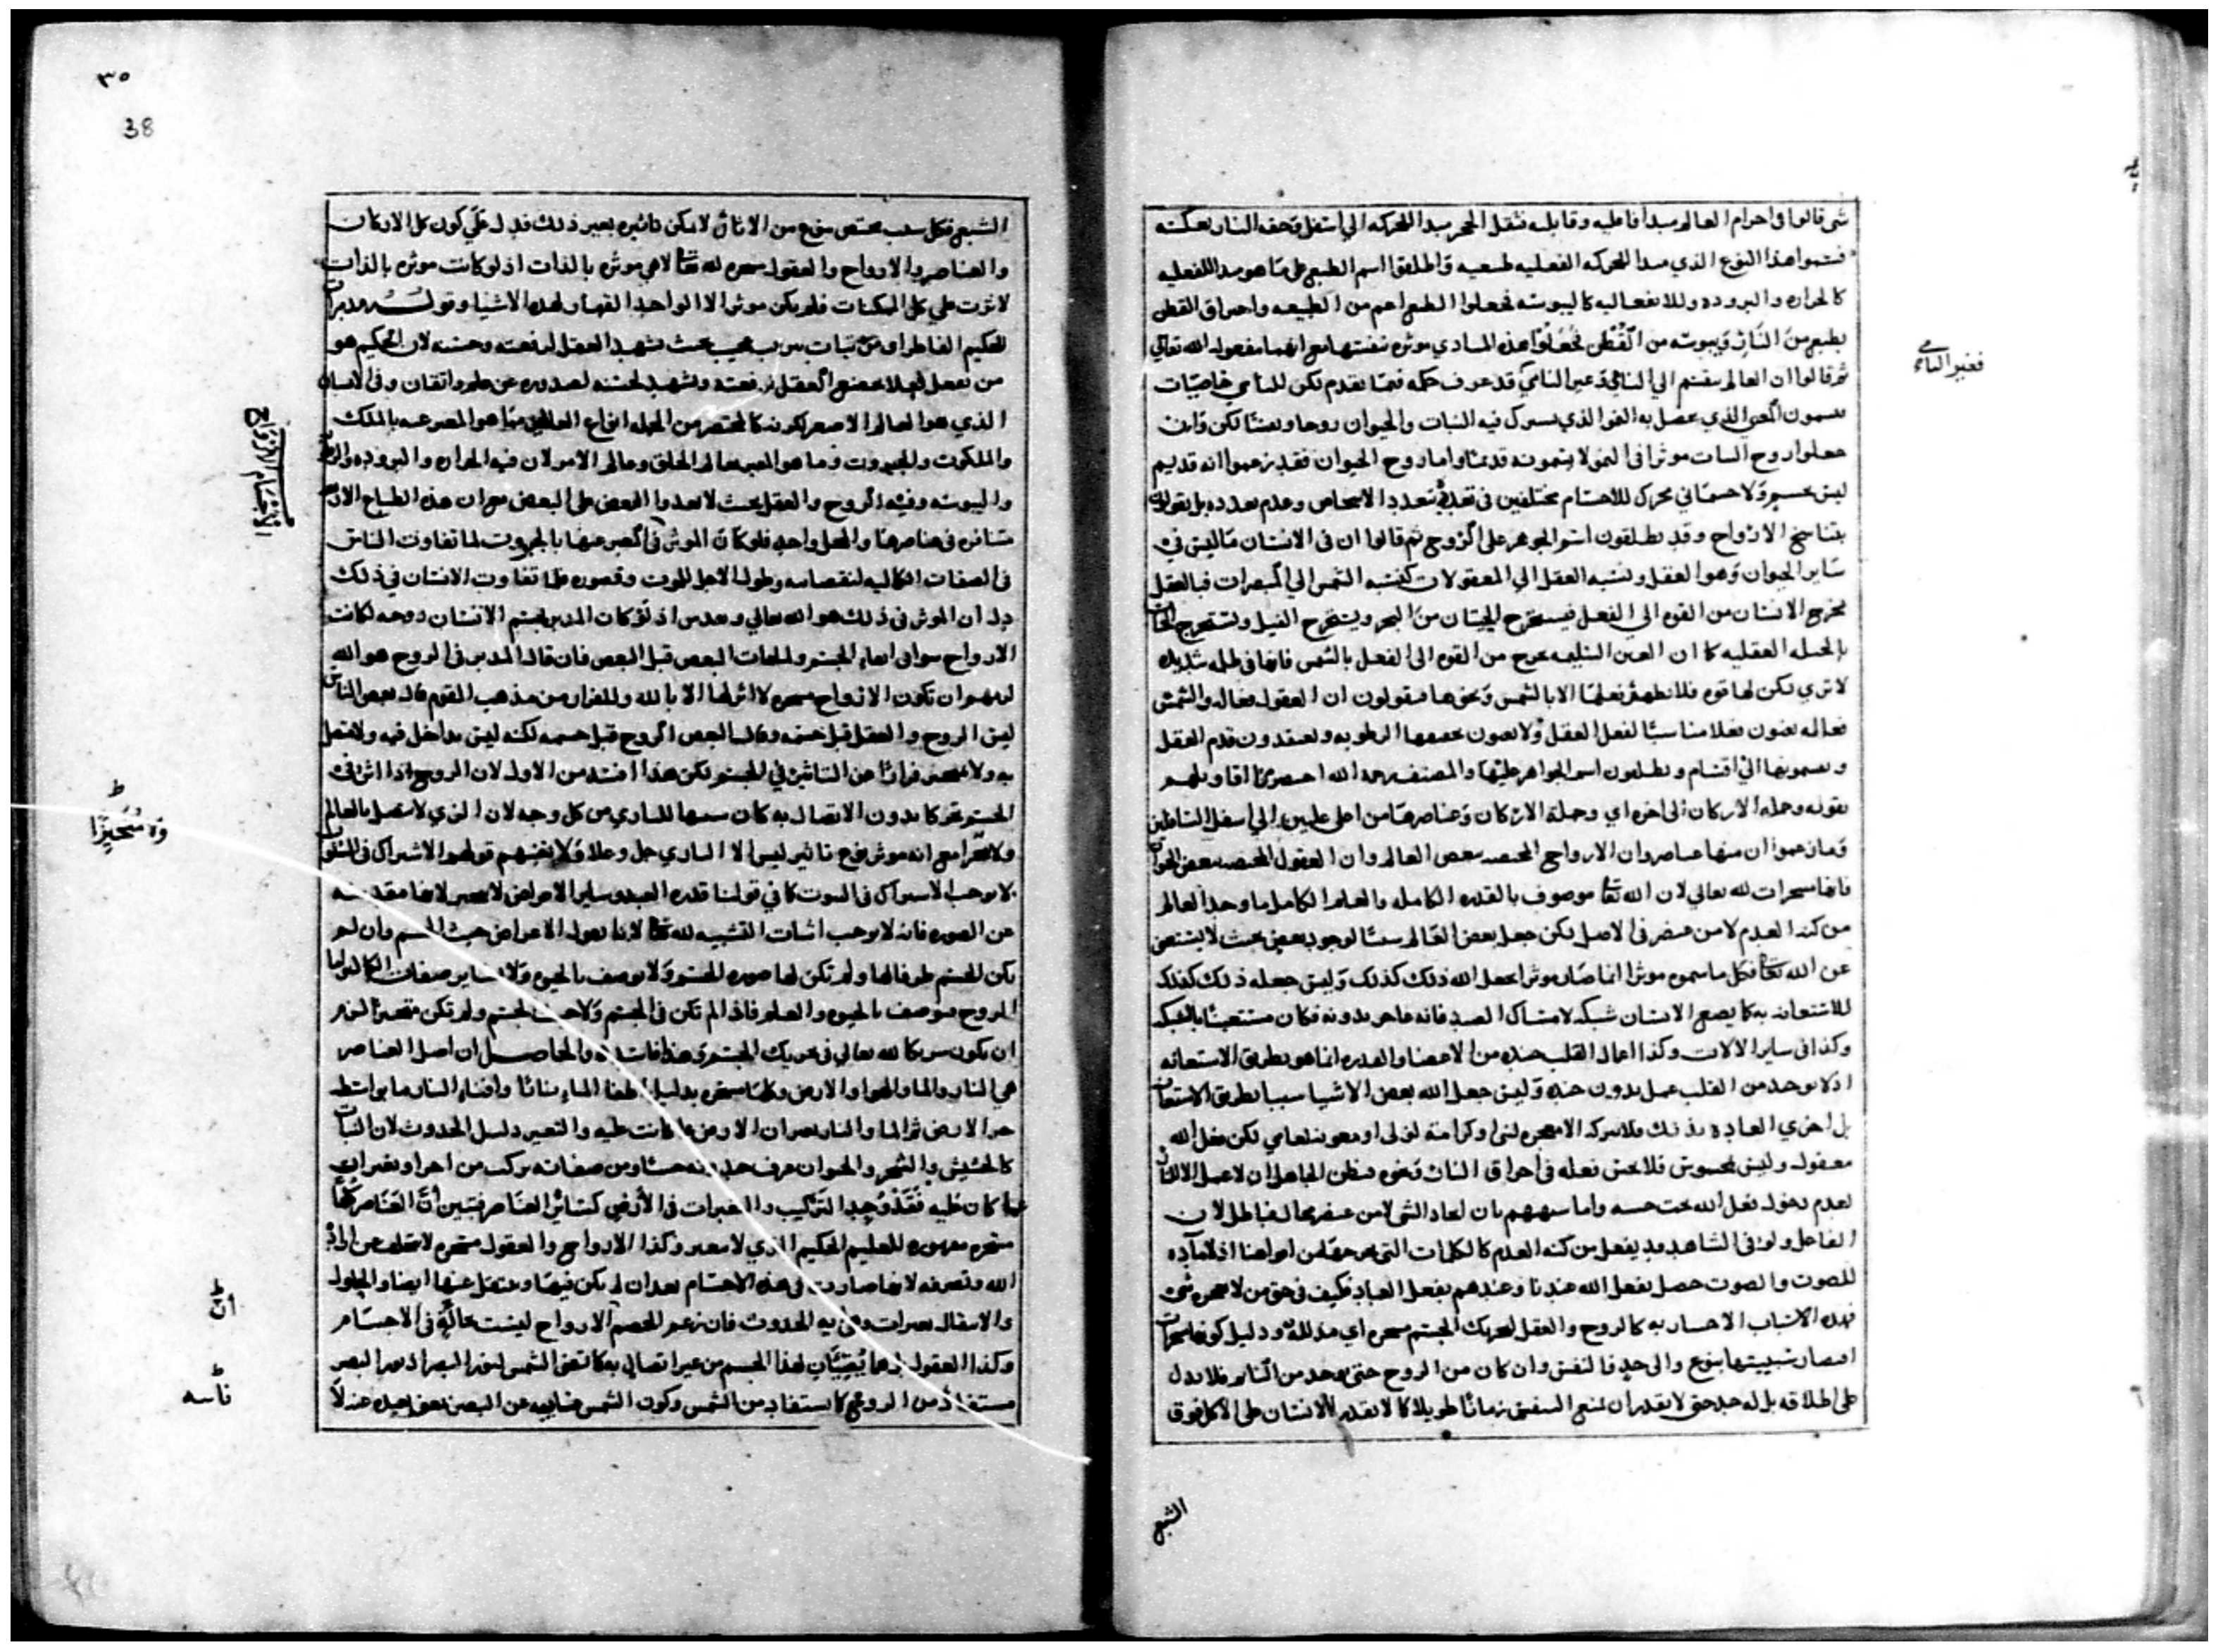 شى قالوا فى اجرام العالم مبدأ فاعليه وقابليه فثقل الحجر مبدا للحركه الى اسفل وخفه النار بعكسه
فسموا هذا النوع الذي مبدا للحركه الفعليه طبيعيه واطلقوا اسم الطبع على ما هو مبدا للفعليه
كالحراره والبروده وللانفعاليه كاليبوسه فجعلوا الطبع اعم من الطبيعه واحراق القطن
بطبع من النار ويبوسه من القطن فجعلوا هذه المبادي موثره بنفسها مع انها مفعوله الله تعالي
ثم قالوا ان العالم ينقسم الي النامي وغير النامي قد عرف حكمه فيما تقدم لكن للنامي خاصيات
يسمون المعنى الذي يحصل به النمو الذي يشترك فيه النبات والحيوان روحا ونفسا لكن وان
جعلوا روح النبات موثرا فى النمو لا يسمونه قديما واما روح الحيوان فقد زعموا انه قديم
ليس بجسم ولا جسماني محرك للاجسام مختلفين فى تعدده بتعدد الاشخاص وعدم تعدده بل يقولون
بتناسخ الارواح وقد يطلقون اسم الجوهر على الروح ثم قالوا ان فى الانسان ما ليس فى
ساير الحيوان وهو العقل ونسبه العقل الى المعقولات كنسبه الشمس الي المبصرات فبالعقل
يخرج الانسان من القوه الي الفعل فيستخرج الحيتان من البحر ويستخرج الفيل ويستخرج
بالحيله العقليه كما ان العين السليمه تخرج من القوه الى الفعل بالشمس فانها فى ظلمه شديده
لا تري لكن لها قوه فلا يظهر فعلها الا بالشمس ونحوها فيقولون ان العقول فعاله والشمس
فعاله يعنون فعلا مناسبا لفعل العقل ولا يعنون الرطوبه ويعتقدون قدم العقل
ويسمونها الى اقسام ويطلقون اسم الجواهر عليها والمصنف رحمه الله احصى اقاويلهم
بقوله وجمله الاركان الى اخره اي وجملة الاركان وعناصرها من اعلى عليين الي اسفل السافلين
وما زعموا ان منها عناصر وان الارواح المختصه ببعض العالم وان العقول المختصه ببعض
فانها مسخرات لله تعالي لان الله تعا موصوف بالقدره الكامله والعلم الكامل ما وجد العالم
من كنه العدم لا من عنصر فى الاصل لكن جعل بعض العالم سببا لوجود بعض بحيث لا يستغنى
عن الله تعا فكل ما سموه موثرا انما صار موثرا بجعل الله ذلك كذلك وليس جعله ذلك كذلك
للاستعانه به كما يصنع الانسان شبكه لامساك الصيد فانه عاجز بدونه فكان مستعينا بالشبكه
وكذا فى ساير الالات وكذا اعمال القلب جنده من الاعضا والقدره انما هو بطريق الاستعانه
اذ لا يوجد من القلب عمل بدون جنده وليس جعل الله بعض الاشيا سببا بطريق الاستعانه
بل اجري العاده بذلك فلا يتركه الا معجزه لنبي او كرامة لولى او معونه لعامي لكن فعل الله
معقول وليس بمحسوس فلا يحس فعله فى احراق النار ونحوه فيظن الجاهل ان لا عمل الا
لعدم دخول فعل الله تحت حسه واما شبههم بان ايجاد الشى لا من عنصر محال فباطل لان
الفاعل ولو فى الشاهد قد يفعل من كنه العدم كالكلمات التى نخرجها من افواهنا اذ لا ماده
للصوت والصوت حصل بفعل الله عندنا وعندهم بفعل العباد فكيف فى حق من لا يعجزه شى
فهذه الاسباب الاختياريه كالروح والعقل لتحريك الجسم مسخره اي مذلله ودليل كونها
اقتصار سببيتها بنوع والى حد فالنفس وان كان من الروح حتى يوجد من النايم فلا يدل
على اطلاقه بل له حد حتى لا يقدر ان يمنع التنفس زمانا طويلا كما لا يقدر الانسان على الاكل فوق
الشبع
فغير النامي
٣٥
38
الشبع فكل سبب مختص بنوع من الاثار لا يمكن تاثيره بغير ذلك فدل على كون كل الاركان
والعناصر والارواح والعقول مسخره لله تعا لا هي موثره بالذات اذ لو كانت موثره بالذات
لاثرت علي كل الممكنات فلم يكن موثرا الا الواحد القهار ولهذه الاشيا وقوله مدبرات
للحكيم الفاطر اوتيت ثبات ترتيب عجيب بحيث يشهد العقل لرفعته وحسنه لان الحكيم هو
من يفعل فعلا يخضع العقل لرفعته ويشهد لحسنه لصدوره عن علم واتقان وفى الانسان
الذي هو العالم الاصغر لكونه كالمختصر من الجمله انواع العالمين مما هو المعبر عنه بالملك
والملكوت والجبروت وما هو المعبر بعالم الخلق وعالم الامر لان فيه الحراره والبروده والرطوبه
واليبوسه وفيه الروح والعقل بحيث لا يعدوا البعض على البعض مع ان هذه الطباع الاربع
متنافره فى عناصرها والمحل واحد فلو كان الموثر فى المعبر عنها بالجبروت لما تفاوت الناس
فى الصفات الكماليه لنقصانه وطول الاجل للموت وقصوره فلما تفاوت الانسان في ذلك
دل ان الموثر فى ذلك هو الله تعالي وتقديره اذ لو كان المدبر لجسم الانسان روحه لكانت
الارواح سوا فى ابقاء الجسم ولما مات البعض قبل البعض فان قال المدبر فى الروح هو الله
لزمهم ان تكون الارواح مسخره لا اثر لها الا بالله وللفرار من مذهب القوم قال بعض الناس
ليس الروح والعقل قبل جسمه وقال البعض الروح قبل جسمه لكنه ليس بداخل فيه ولا متصل
به ولا متحيز فرارا عن التاثير في الجسم لكن هذا افسد من الاول لان الروح اذا اثر فى
الجسم تحركا بدون الاتصال به كان شبيها للباري من كل وجه لان الذي لا يتصل بالعالم
ولا متحيزا مع انه موثر نوع تاثير ليس الا الباري جل وعلا ولا ينفعهم قولهم الاشتراك فى السلوب
لا يوجب الاشتراك فى الثبوت كما في قولنا قدره العبد وساير الاعراض لا متحيز لانها مقدسه
عن الصوره فانه لا يوجب اثبات التشبيه لله تعا لانا نقول الاعراض حيث الجسم وان لم
يكن للجسم ظرفا لها ولم تكن لها صوره الجسم ولا توصف بالحيوه ولا بساير صفات الكمال واما
الروح فيوصف بالحيوه والعلم فاذا لم تكن فى الجسم ولا حيث الجسم ولم تكن متحيزا لزم
ان يكون شريكا لله تعالي فى تحريك الجسم وهذا فاسد والحاصل ان اصل العناصر
هي النار والما والهوا والارض وكلها مسخره بدليل اطفا الماء نارا وافناء النار ما بواسطه
حر الارض ثم الما والنار يغيران الارض عما كانت عليه والتغير دليل الحدوث لان النبات
كالحشيش والشجر والحيوان عرف حدوثه حسا ومن صفاته تركب من اجزا وتغيرات
عما كان عليه فقد وجد التركيب والتغيرات فى الارض كساير العناصر فتبين ان العناصر كلها
مسخره مقهوره للعليم الحكيم الذي لا يتغير وكذا الارواح والعقول مسخره لا تتخلف عن اراده
الله وتصرفه لانها صارت فى هذه الاجسام بعد ان لم يكن فيها وينتقل عنها ايضا والحلول
والانتقال تغيرات وهى ايه الحدوث فان زعم الخصم الارواح ليست حالة فى الاجسام
وكذا العقول بل هما يضيئان لهذا الجسم من غير اتصال به كما تضى الشمس لنور البصر اذ نور البصر
مستفاد من الروح كما استفاد من الشمس وكون الشمس غايبه عن البصر بعض بعيده عنه لا
الاجسام الارواح
وه متحيزا
ان
ناسه